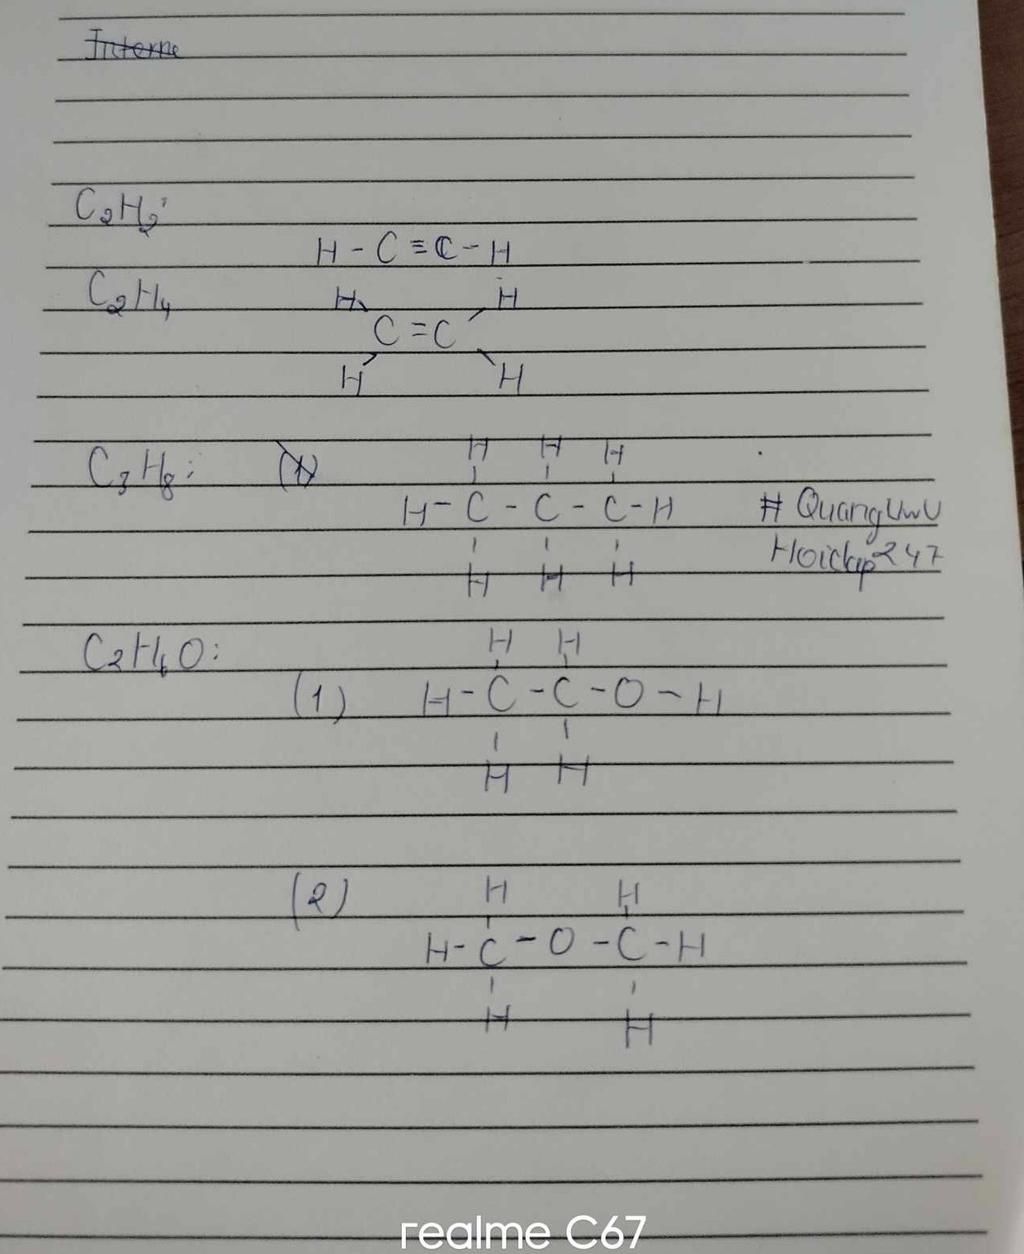 Interne
C₂H₂:
H - C ≡ C - H
C₂H₄
H H
C = C
H H
C₃H₈: (1)
H H H
H - C - C - C - H # QuangUwU
Hoidap247
H H H
C₂H₆O:
H H
(1) H - C - C - O - H
H H
(2) H H
H - C - O - C - H
H H
realme C67